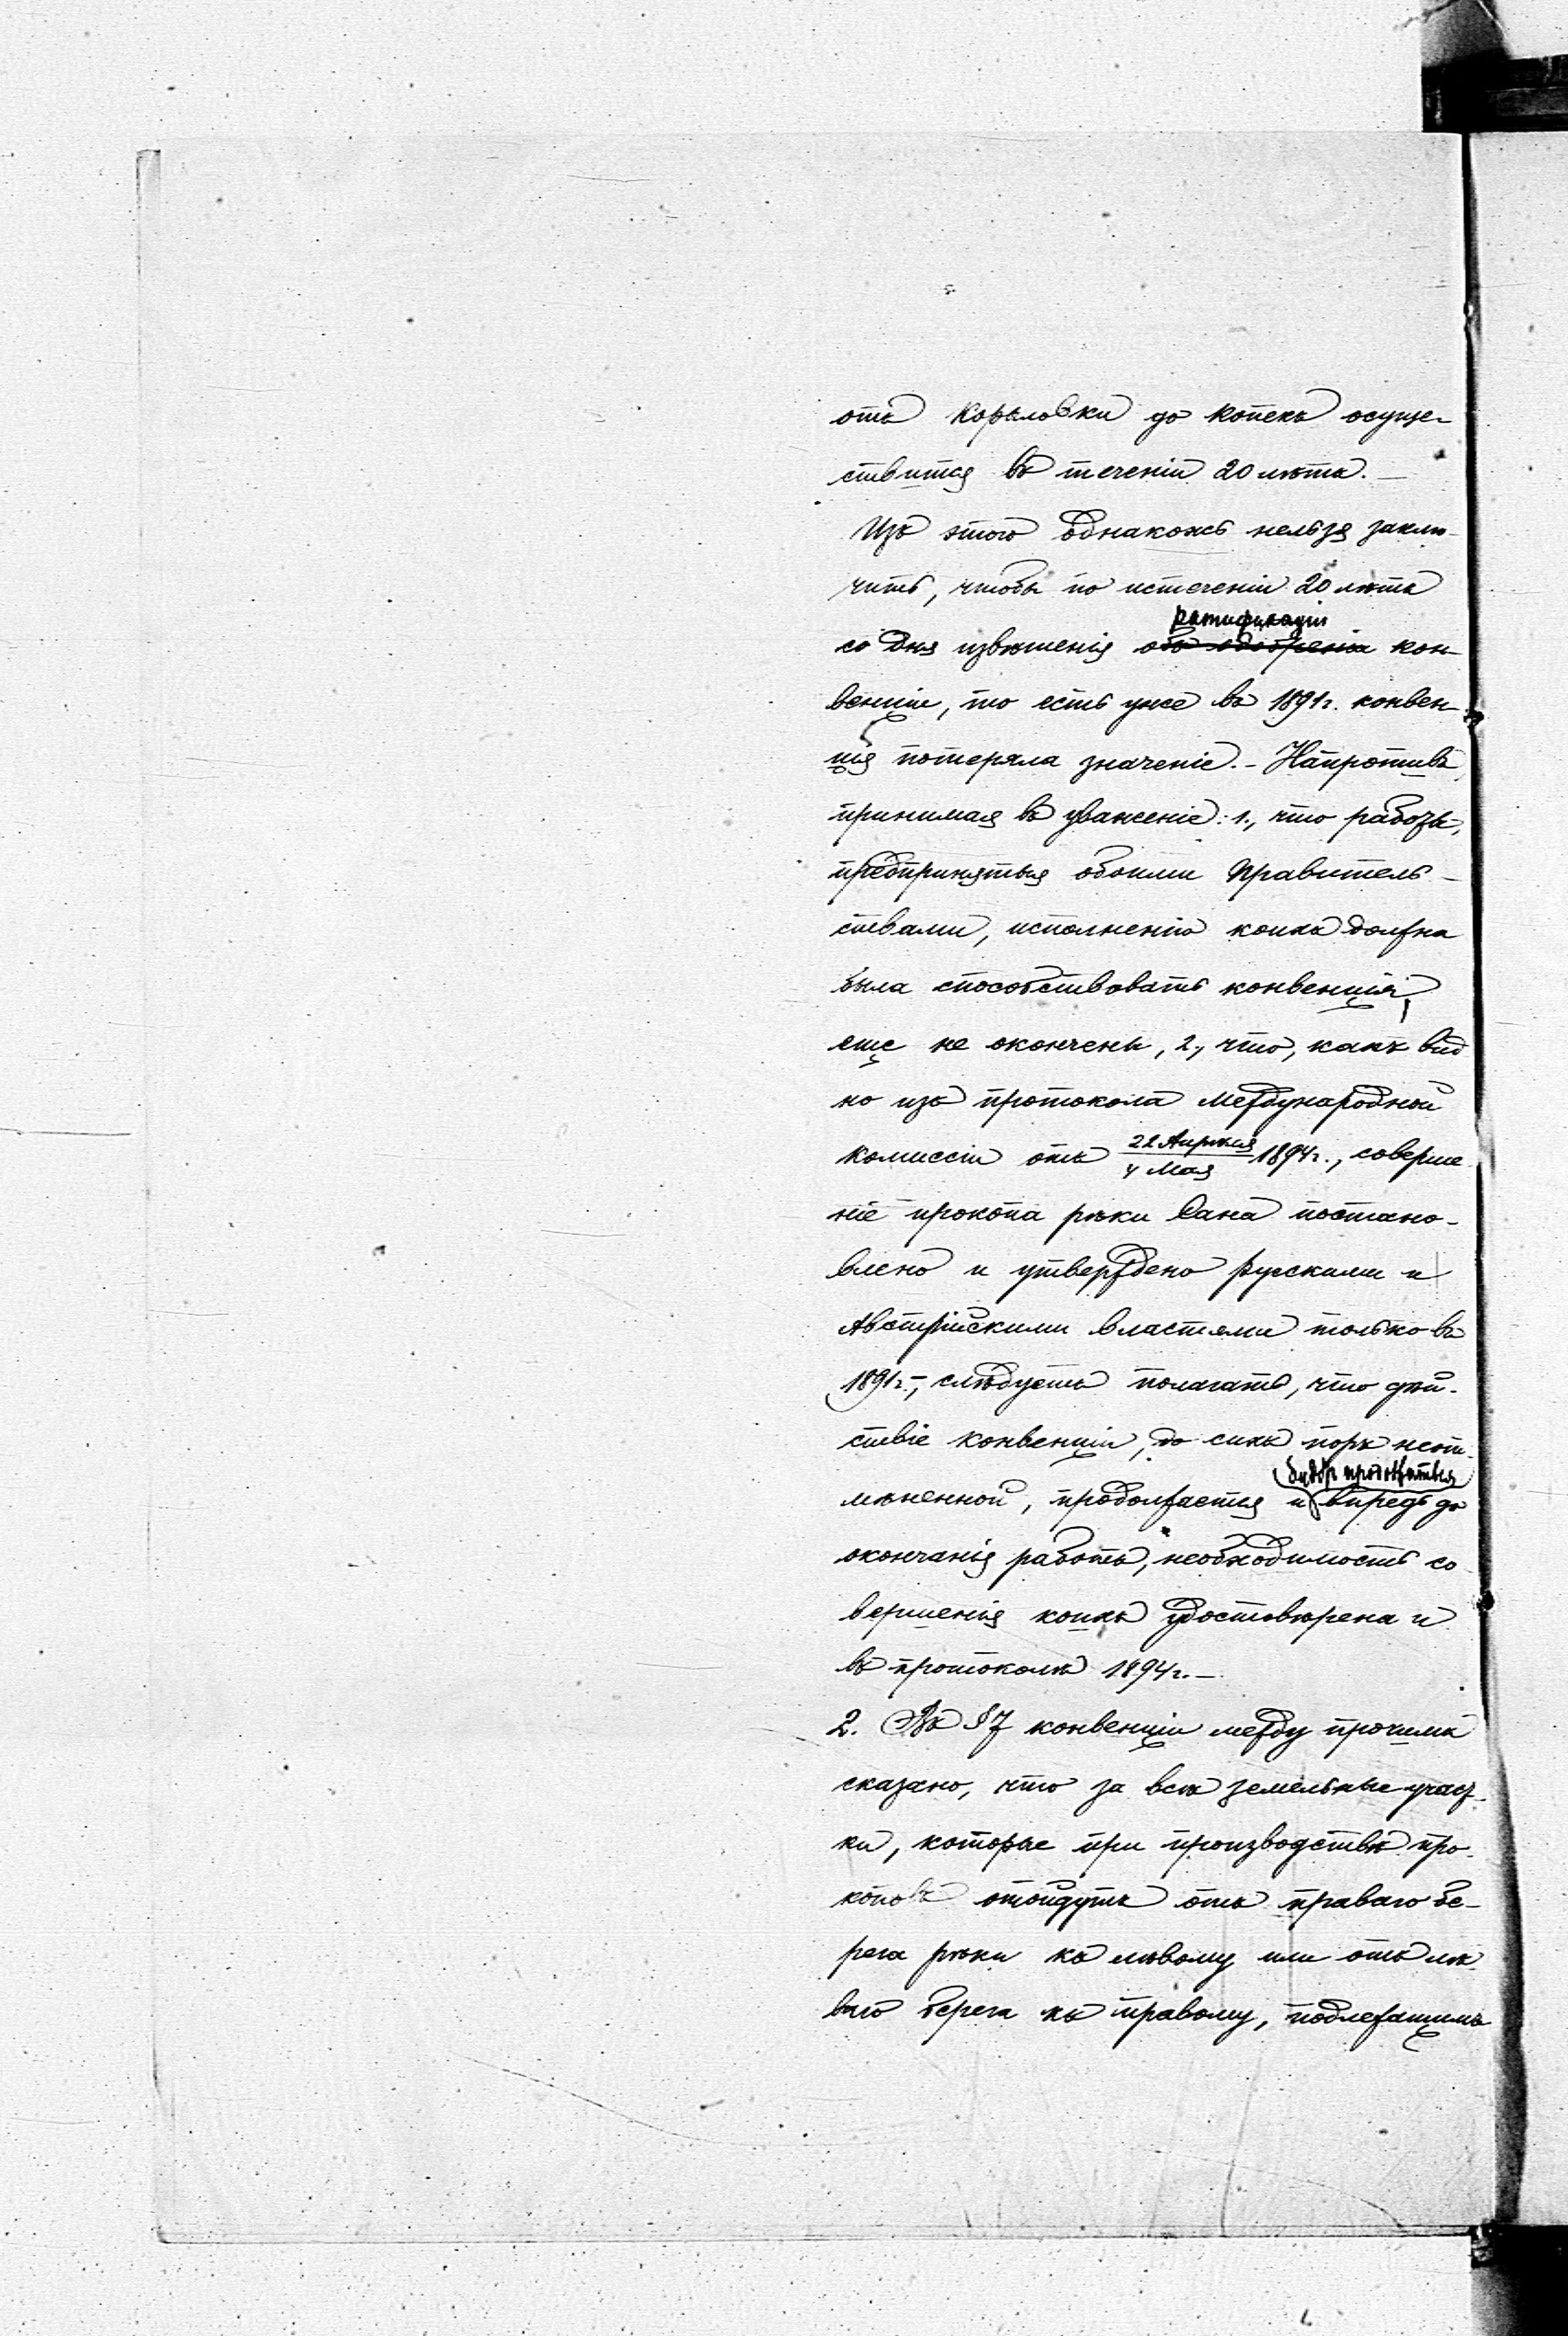 отъ Корыловки до копекъ осуще-
ствится въ теченіи 20 лѣтъ. —
Изъ этого однакожъ нельзя заклю-
чить, чтобы по истеченіи 20 лѣтъ
ратификаціи
со дня извѣщенія объ одобреніи кон-
венціи, то есть уже въ 1891 г. конвен-
ція потеряла значеніе. - Напротивъ,
принимая въ уваженіе: 1., что работы,
предпринятыя обоими правитель-
ствами, исполненію коихъ должна
была способствовать конвенція,
еще не окончены, 2., что, какъ вид
но изъ протокола Международной
комиссіи отъ 22 Апрѣля / 4 Мая 1894 г., соверше
ніе прокопа рѣки Сана постано-
влено и утверждено русскими и
Австрійскими властями только въ
1891 г., слѣдуетъ полагать, что дѣй-
ствіе конвенціи, до сихъ поръ неот-
будетъ продолжаться
мѣненной, продолжается и впредь до
окончанія работъ, необходимость со
вершенія коихъ удостовѣрена и
въ протоколѣ 1894 г. —
2. Въ § 7 конвенціи между прочимъ
сказано, что за всѣ земельные участ-
ки, которые при производствѣ про-
коповъ отойдутъ отъ праваго бе-
рега рѣки къ лѣвому или отъ лѣ
ваго берега къ правому, подлежащимъ